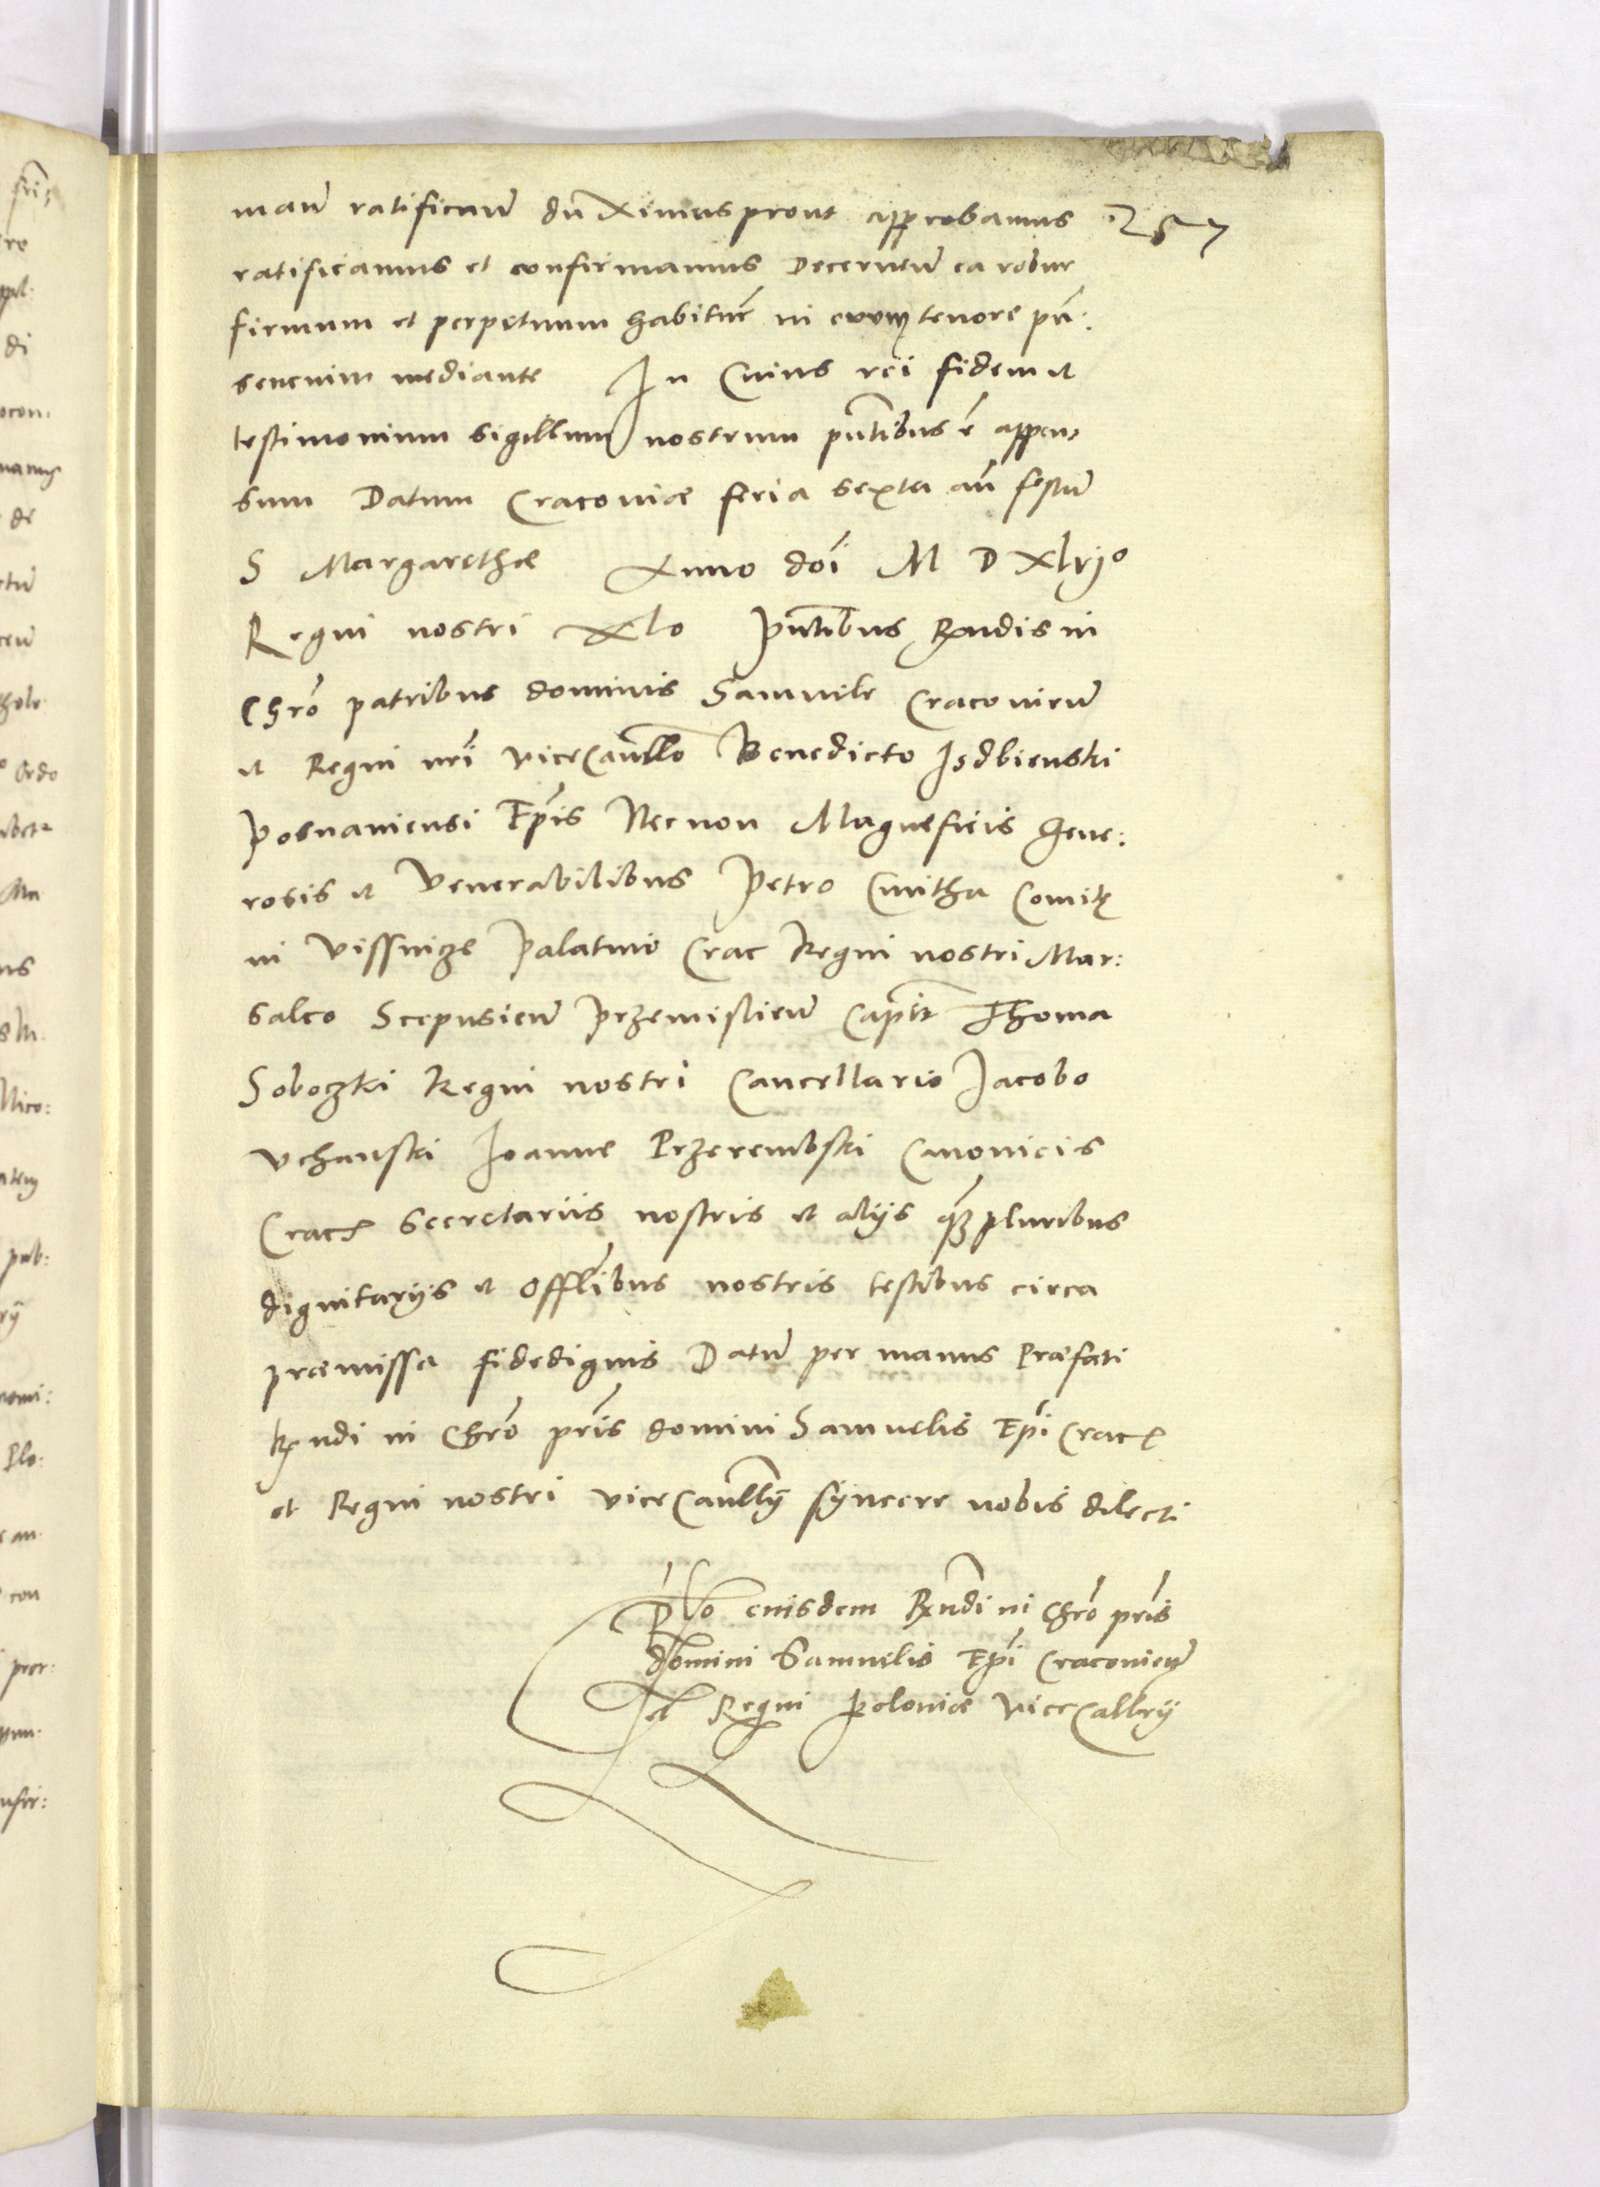 manū ratificaū duximus prout approbamus 257
ratificamus et confirmamus Decernēn ea robur
firmum et perpetuum habiturā in evum tenore pn̄:
senenim mediante In Cuius rei fidem et
testimonium sigillum nostrum pn̄tibus ē appen,
sum Datum Cracoviæ feria sexta an̄ festū
S Margarethæ Anno doī M D Xlvjo
Regni nostri Xlo Pn̄tibus Rx̄ndis in
Chrō patribus dominis Samuele Cracovieñ
et Regni nrī viceCanllō Benedicto Isdbienski
Posnaniensi Ep̄is Necnon Magneficis Gene:
rosis et Venerabilibus Petro Cmitha Comite
in Vissnicze Palatino Crac Regni nostri Mar:
salco Scepusieñ Przemislieñ Capitt Thoma
Soboczki Regni nostri Cancellario Jacobo
Vchanski Joanne Przerembski Canonicis
Crac secretariis nostris et alijs q̄ꝫ pluribus
dignitarijs et Offl̄ibus nostris testibus circa
præmissa fidedignis Datū per manus Præfati
Rx̄ndi in Chrō pr̄is domini Samuelis Ep̄i Crac
et Regni nostri viceCanllīj syncere nobis dilecti
Rlo eiusdem Rx̄ndi in Chrō pr̄is
domini Samuelis Ep̄i Cracovieñ
et Regni Poloniæ ViceCallrij